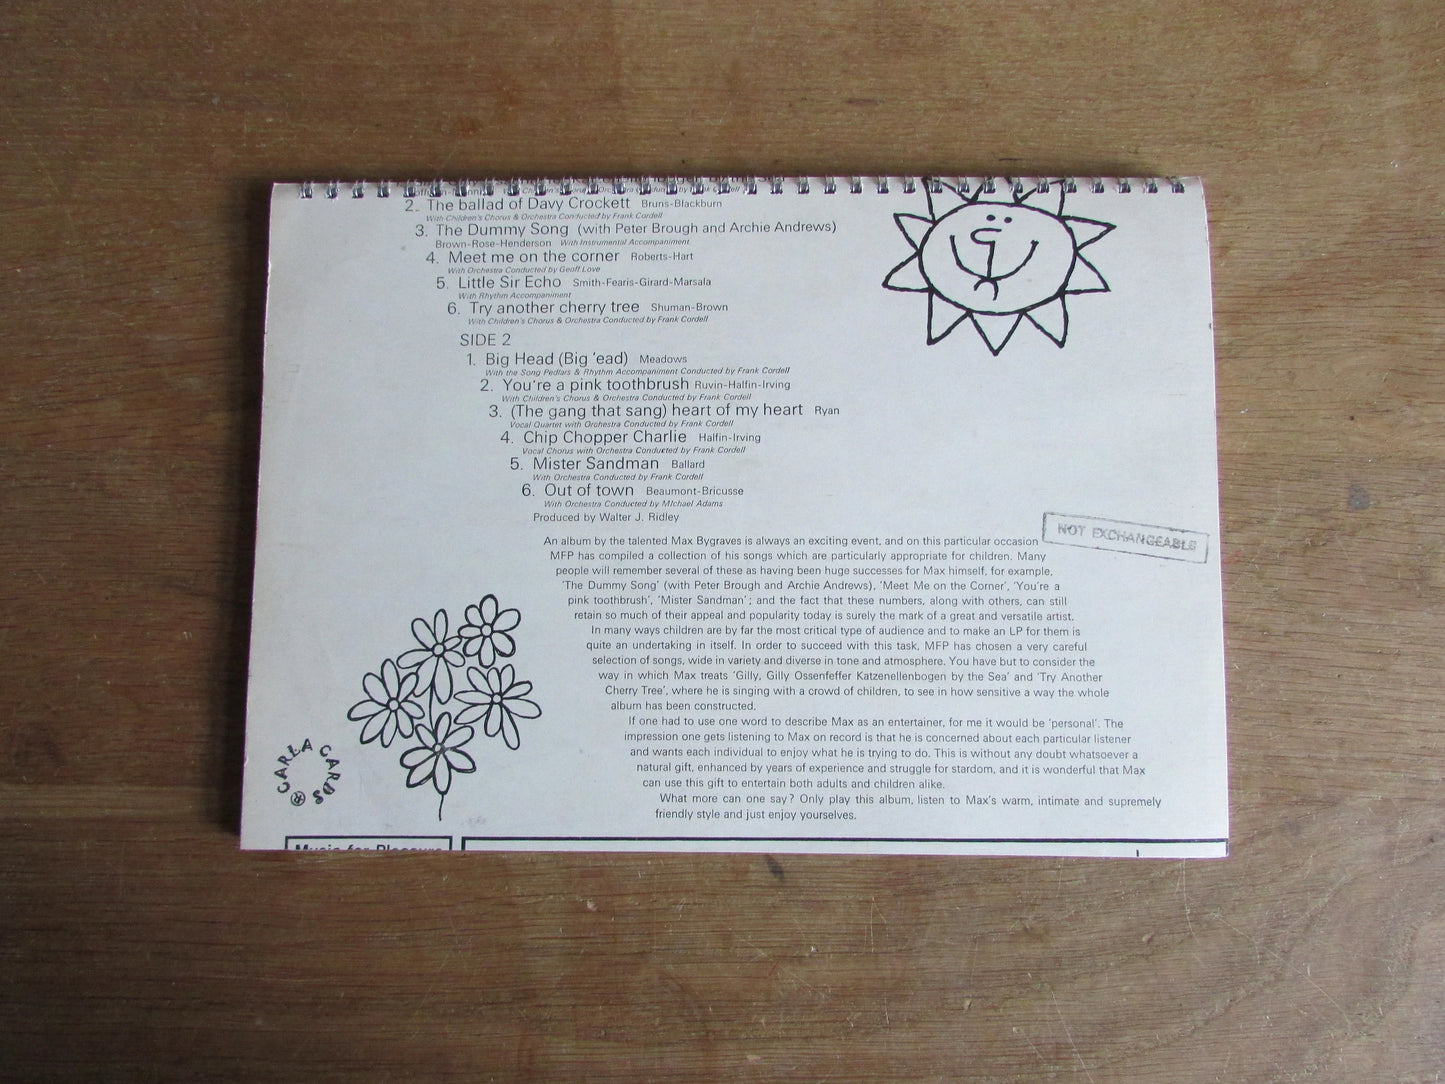 2. The ballad of Davy Crockett Bruns-Blackburn
With Children's Chorus & Orchestra Conducted by Frank Cordell
3. The Dummy Song (with Peter Brough and Archie Andrews)
Brown-Rose-Henderson With Instrumental Accompaniment
4. Meet me on the corner Roberts-Hart
With Orchestra Conducted by Geoff Love
5. Little Sir Echo Smith-Fearis-Girard-Marsala
With Rhythm Accompaniment
6. Try another cherry tree Shuman-Brown
With Children's Chorus & Orchestra Conducted by Frank Cordell
SIDE 2
1. Big Head (Big 'ead) Meadows
With the Song Pedlars & Rhythm Accompaniment Conducted by Frank Cordell
2. You're a pink toothbrush Ruvin-Halfin-Irving
With Children's Chorus & Orchestra Conducted by Frank Cordell
3. (The gang that sang) heart of my heart Ryan
Vocal Quartet with Orchestra Conducted by Frank Cordell
4. Chip Chopper Charlie Halfin-Irving
Vocal Chorus with Orchestra Conducted by Frank Cordell
5. Mister Sandman Ballard
With Orchestra Conducted by Frank Cordell
6. Out of town Beaumont-Bricusse
With Orchestra Conducted by Michael Adams
Produced by Walter J. Ridley
NOT EXCHANGEABLE
An album by the talented Max Bygraves is always an exciting event, and on this particular occasion
MFP has compiled a collection of his songs which are particularly appropriate for children. Many
people will remember several of these as having been huge successes for Max himself, for example,
'The Dummy Song' (with Peter Brough and Archie Andrews), 'Meet Me on the Corner', 'You're a
pink toothbrush', 'Mister Sandman'; and the fact that these numbers, along with others, can still
retain so much of their appeal and popularity today is surely the mark of a great and versatile artist.
In many ways children are by far the most critical type of audience and to make an LP for them is
quite an undertaking in itself. In order to succeed with this task, MFP has chosen a very careful
selection of songs, wide in variety and diverse in tone and atmosphere. You have but to consider the
way in which Max treats 'Gilly, Gilly Ossenfeffer Katzenellenbogen by the Sea' and 'Try Another
Cherry Tree', where he is singing with a crowd of children, to see in how sensitive a way the whole
album has been constructed.
If one had to use one word to describe Max as an entertainer, for me it would be 'personal'. The
impression one gets listening to Max on record is that he is concerned about each particular listener
and wants each individual to enjoy what he is trying to do. This is without any doubt whatsoever a
natural gift, enhanced by years of experience and struggle for stardom, and it is wonderful that Max
can use this gift to entertain both adults and children alike.
What more can one say? Only play this album, listen to Max's warm, intimate and supremely
friendly style and just enjoy yourselves.
CARLA CARDS ®
Music for Pleasure